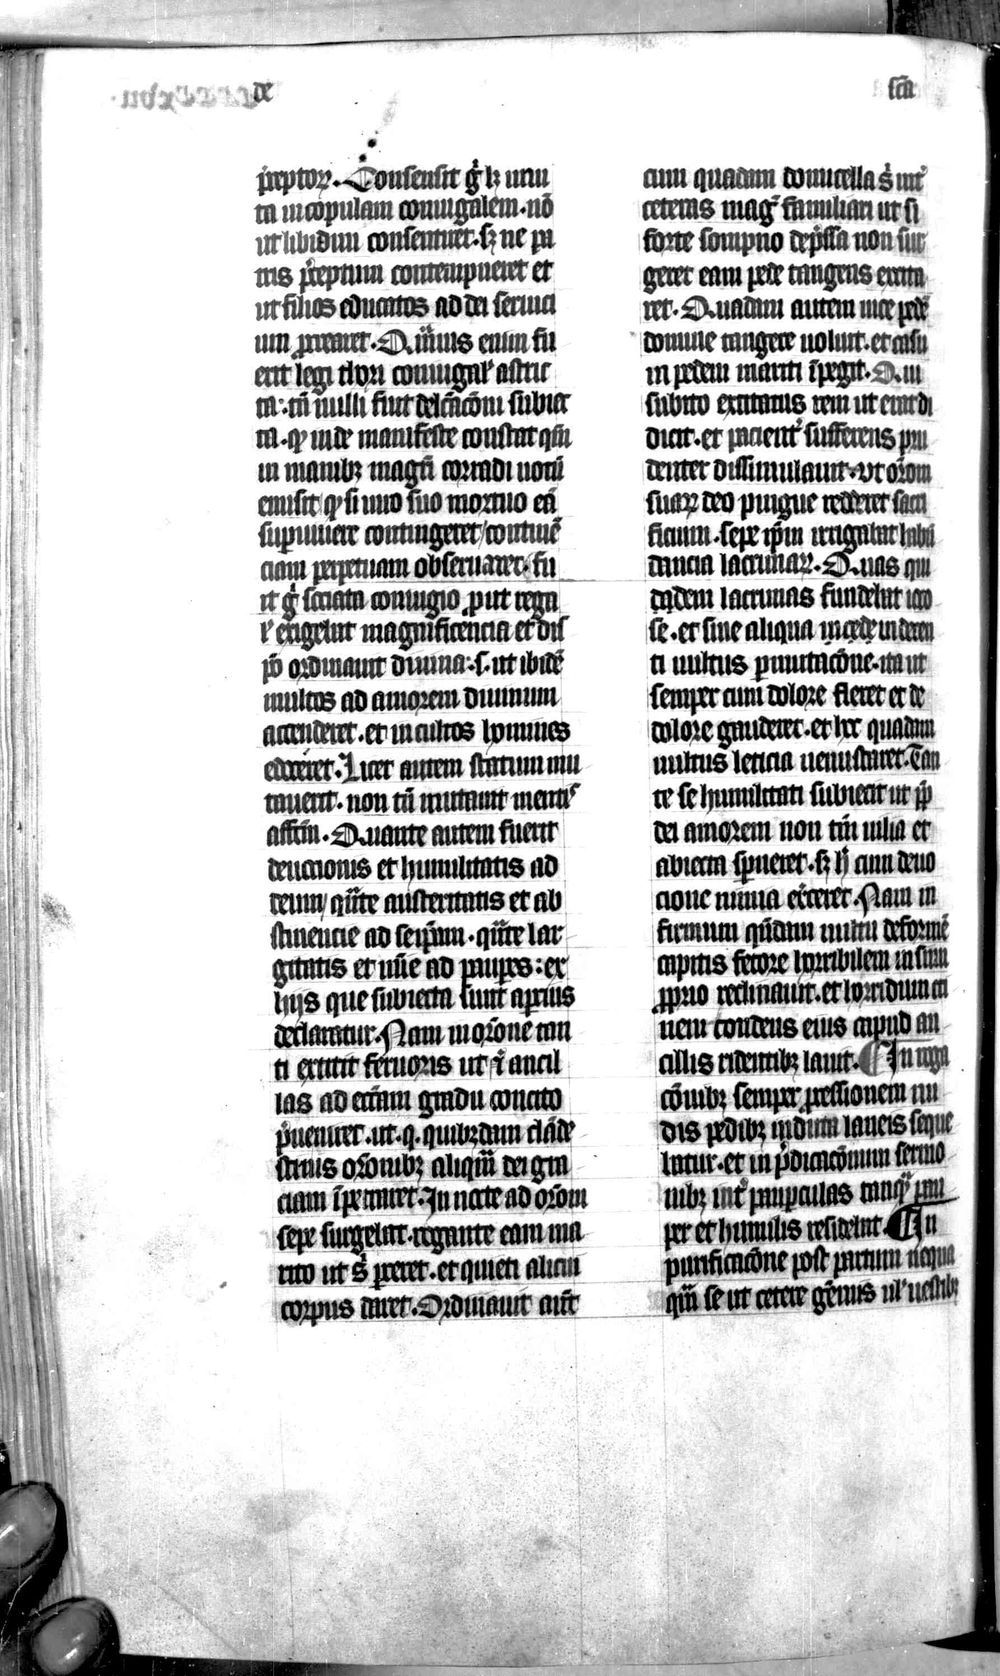 de
sc̄a
p̄reptoꝝ. Consensit gͥ lꝫ inui
ta in copulam coniugalem. nō
ut libidini consentiret. sꝫ ne pa
tris p̄ceptum contempneret et
ut filios educatos ad dei seruici
um ꝓcrearet. Quāuis enim fu
erit legi thori coniugal' astric
ta: tn̄ nulli fuit delc̄acōni subiec
ta. qꝫ inde manifeste constat qm̄
in manibꝫ magr̄i conradi uotū
emisit qꝫ si uiro suo mortuo eā
sup̱uiuere contingeret / continē
ciam perpetuam obseruaret. fu
it gͥ sociata coniugio ꝓut rega
l' exigebat magnificencia et dis
pō ordinauit diuina. s. ut ibidē
multos ad amorem diuinum
accenderet. et incultos homines
edoceret. Licet autem statum mu
tauerit. non tn̄ mutauit mentis
affc̄m. Quante autem fuerit
deuocionis et humilitatis ad
deum / qn̄te austeritatis et ab
stinencie ad seip̄am. qn̄te lar
gitatis et mīe ad paup̱es: ex
hijs que subiecta sunt ap̱cius
declaratur. Nam in orōne tan
ti extitit feruoris ut ⁊ ancil
las ad eccīam gradu concito
p̄ueniret. ut. q. quibꝫdam clāde
stinis orōnibꝫ aliquā dei gra
ciam īpetraret. In nocte ad orōm
sepe surgebat. rogante eam ma
rito ut sͥ p̱ceret. et quieti aliciu
corpus daret. Ordinauit aūt
cum quadam domicella sͥ int'
ceteras mag' familiari ut si
forte sompno dep̄ssa non sur
geret eam pede tangens excita
ret. Quadam autem uice pedē
domine tangere uoluit. et casu
in pedem mariti īpegit. Qui
subito excitatus rem ut erat di
dicit. et pacient' sufferens pru
denter dissimulauit. vt orōm
suaꝝ deo pingue redderet sacri
ficium. sepe ip̄m irrigabat habū
dancia lacrimaꝝ. Quas qui
dqdem lacrimas fundebat ioco
se. et sine aliqua incede indecen
ti uultus p̱mutacōne. ita ut
semper cum dolore fleret et de
dolore gauderet. et hec quadam
uultus leticia uenustaret. Tan
te se humilitati subiecit ut ꝓp̱
dei amorem non tm̄ uilia et
abiecta sp̱neret. sꝫ h̄ cum deuo
cione nimia ex̄ceret. Nam in
firmum qn̄dam uultu deformē
capitis fetore horribilem in sinu
ꝓprio reclinauit. et horridum cri
nem tondens eius capud an
cillis ridentibꝫ lauit. In roga
cōnibꝫ semper ꝓcessionem nu
dis pedibꝫ induta laneis seque
batur. et in p̄dicacōnum sermo
nibꝫ int' paup̱culas tanqꝫ pau
per et humilis residebat. In
purificacōne post partum nequa
qm̄ se ut cetere gēmis ul' uestibꝫ